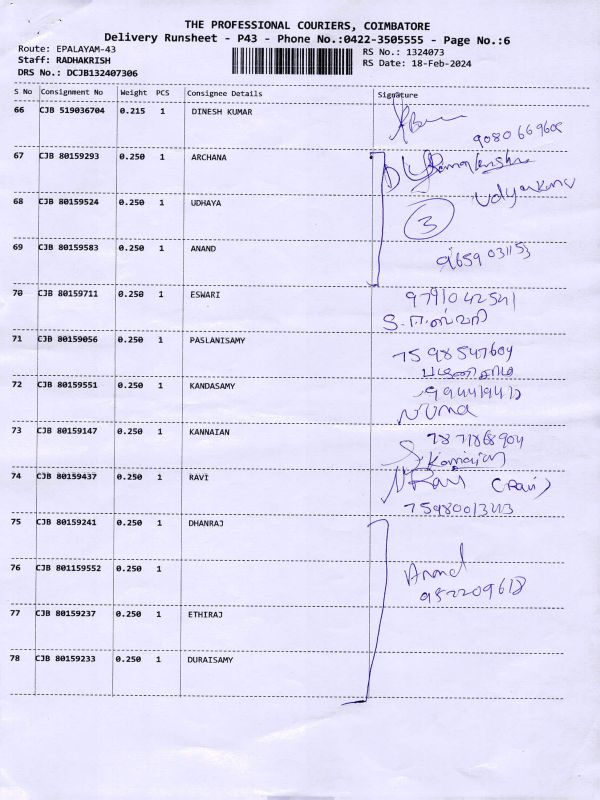 THE PROFESSIONAL COURIERS, COIMBATORE
Delivery Runsheet - P43 - Phone No.:0422-3505555 - Page No.:6
Route: EPALAYAM-43
RS No.: 1324073
Staff: RADHAKRISH
RS Date: 18-Feb-2024
DRS No.: DCJB132407306
S No Consignment No Weight PCS Consignee Details Signature
66 CJB 519036704 0.215 1 DINESH KUMAR
67 CJB 80159293 0.250 1 ARCHANA
68 CJB 80159524 0.250 1 UDHAYA
3
69 CJB 80159583 0.250 1 ANAND
70 CJB 80159711 0.250 1 ESWARI 9791042541
71 CJB 80159056 0.250 1 PASLANISAMY 7598547604
72 CJB 80159551 0.250 1 KANDASAMY
73 CJB 80159147 0.250 1 KANNAIAN 7871868904
74 CJB 80159437 0.250 1 RAVI N Ravi (Ravi)
7598001343
75 CJB 80159241 0.250 1 DHANRAJ
76 CJB 801159552 0.250 1 Anand
77 CJB 80159237 0.250 1 ETHIRAJ
78 CJB 80159233 0.250 1 DURAISAMY